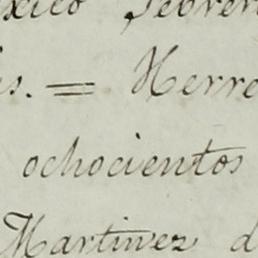 xico Febrer
is. = Herre
ochocientos
Martinez d